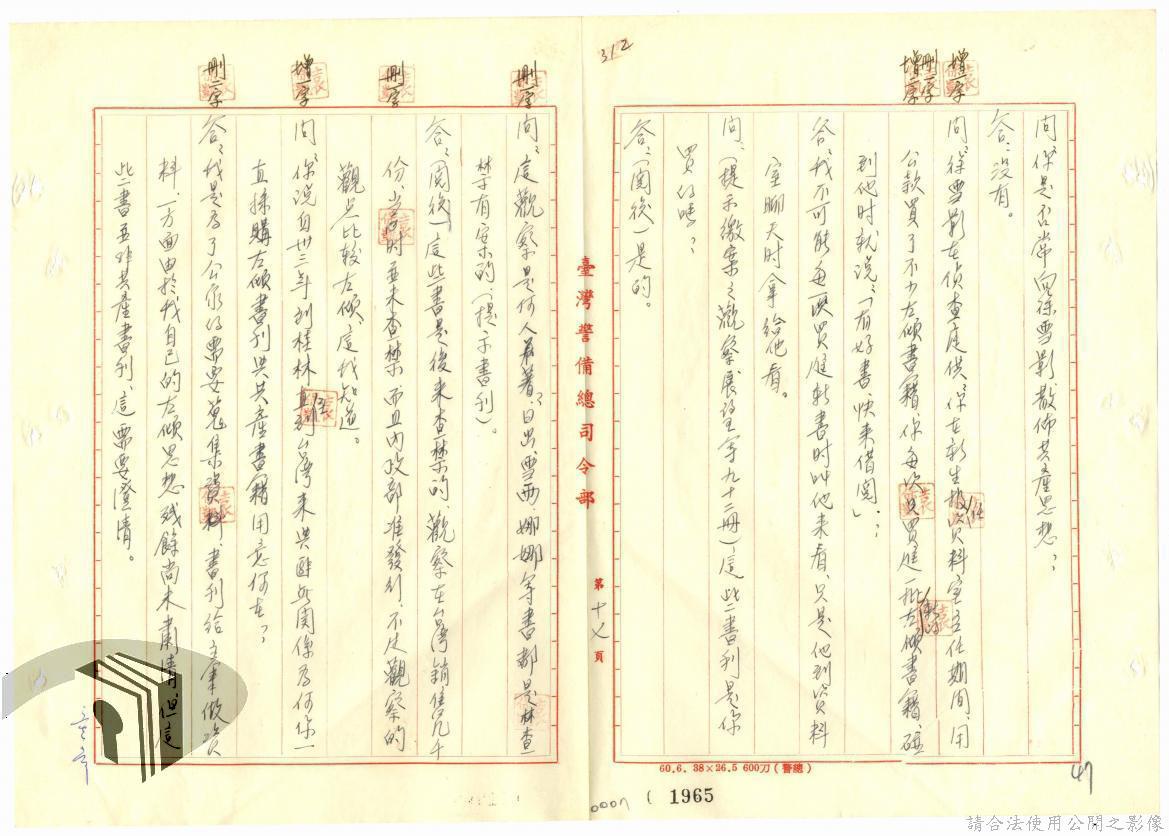 312
增一字
刪一字
增一字
問：你是否常向徐雪影散佈共產思想？
答：沒有。
問：徐雪影在偵查庭供：你在新生報資料室主任期間，用
公款買了不少左傾書籍，你每次只買進一批左傾書籍，碰
到他时就說：「有好書快來借閱」？
答：我不可能每一次買進新書时叫他來看，只是他到資料
室聊天时拿給他看。
問：（提示繳案之觀察展望等九十二冊）這些書刊是你
買的嗎？
答：（閱後）是的。
臺灣警備總司令部
第十七頁
60.6. 38×26.5 600刀（警總）
47
刪一字
刪一字
增一字
刪一字
問：這觀察是何人著？日出、雪西、娜娜等書都是查
禁有案的（提示書刊）。
答：（閱後）這些書是後來查禁的，觀察在台灣銷售幾千
份，当时並未查禁而且內政部准發行，不过觀察的
觀点比較左傾，這我知道。
問：你說自卅三年到桂林到台灣來與匪無関係為何你一
直採購左傾書刊與共產書籍用意何在？
答：我是為了公家的需要蒐集資料，書刊給主筆做資
料，一方面由於我自己的左傾思想殘餘尚未肅清，但這
些書並非共產書刊，這需要澄清。
0007 ( 1965
請合法使用公開之影像